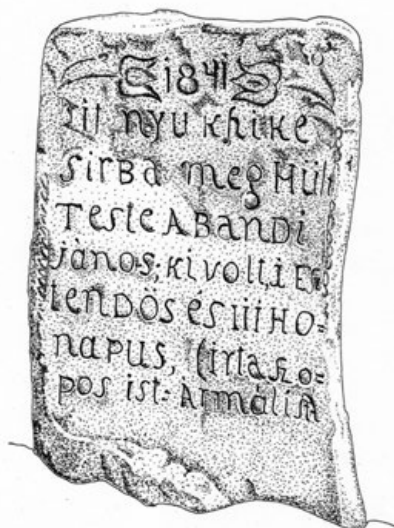 1841
Itt nyu khike
SirBa meg Hült
Teste ABanDi
János; ki volt, i Esz
tenDÖs éS iii HO=
naPUS, (irta Szo=
pos ist: Armálist